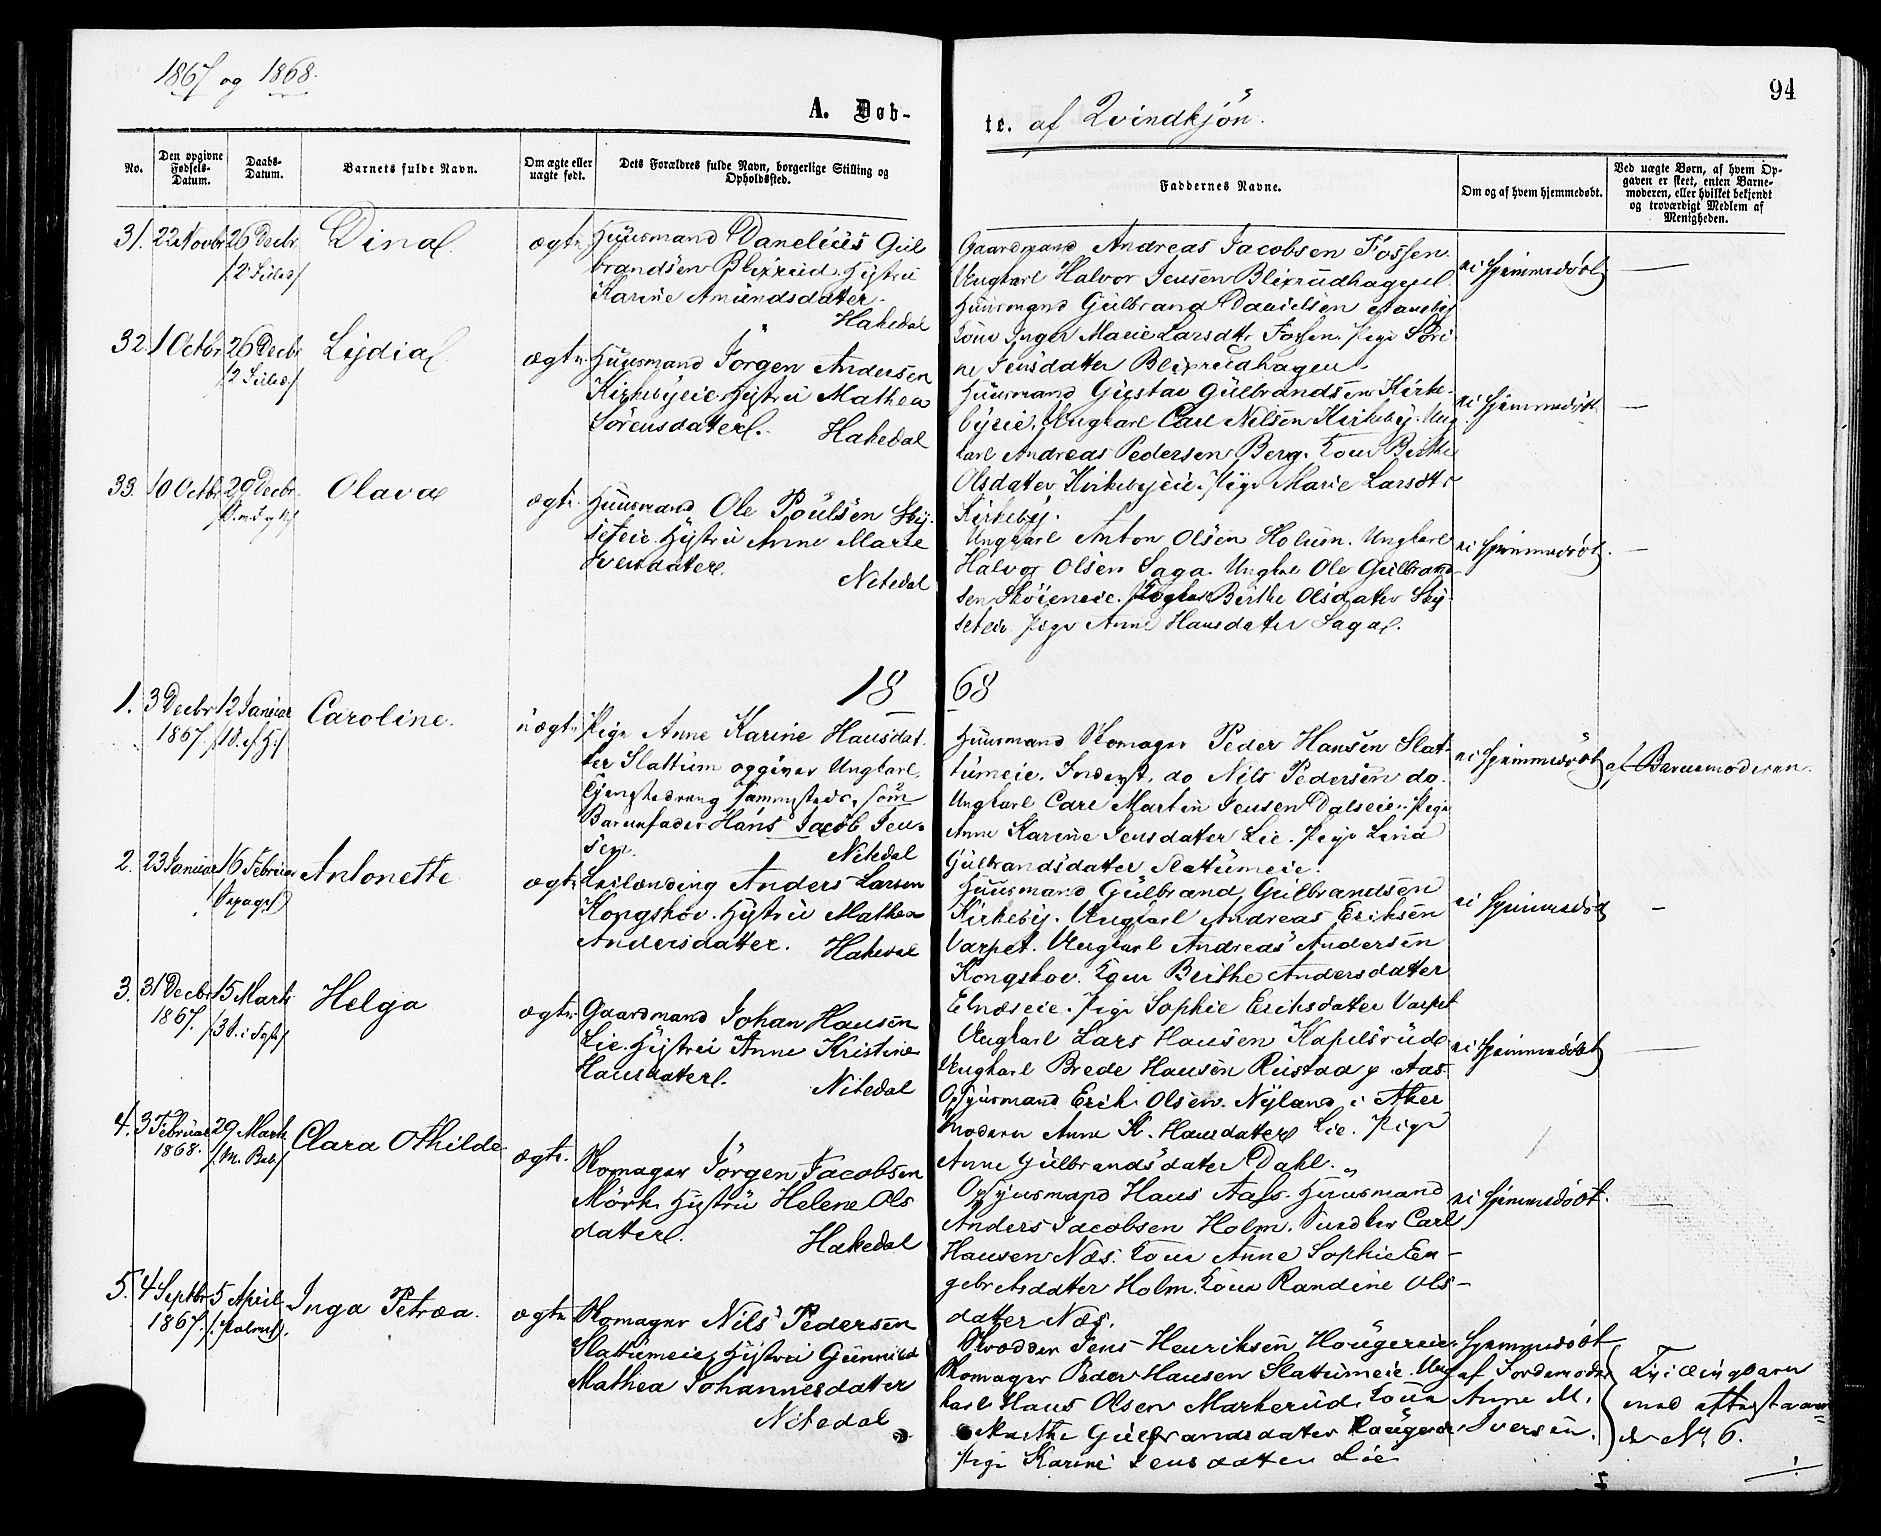 1867 og 1868.
94
A. Døb-
te. af Qvindkjön.
No.
Den opgivne Fødsels-Datum.
Daabs-Datum.
Barnets fulde Navn.
Om ægte eller uægte født.
Dets Forældres fulde Navn, borgerlige Stilling og Opholdssted.
Faddernes Navne.
Om og af hvem hjemmedøbt.
Ved uægte Børn, af hvem Opgaven er skeet, enten Barnemoderen, eller hvilket bekjendt og troværdigt Medlem af Menigheden.
31. 22 Novbr 26 Decbr Dina ægte
/2 Juled/
Huusmand Danelius Gul
brandsen Blixrud. Hustru
Karine Amundsdatter.
Hakedal
Gaardmand Andreas Jacobsen Fossen
Ungkarl Halvor Jensen Blixrudhagen
Huusmand Gulbrand Danielsen
Kone Inger Marie Larsdtr Fossen. Pige Sori
ne Jensdatter Blixrudhagen
ei hjemmedøbt
32 1 Octbr 26 Decbr Lydia ægte
/2 Juled/
Huusmand Jörgen Andersen
Kirkebyeie. Hustru Mathea
Sörensdatter.
Hakedal
Huusmand Gustav Gulbrandsen Kirke-
byeie. Ungkarl Carl Nilsen Kirkeby. Ung
karl Andreas Pedersen Berg. Kone Berthe
Olsdatter Kirkebyeie. Pige Marie Larsdtr
Kirkeby.
ei hjemmedøbt
33. 10 Octbr 29 Decbr Olava ægte
Huusmand Ole Poulsen Sky
seteie. Hustru Anne Marie
Iversdatter.
Nitedal
Ungkarl Anton Olsen Holum. Ungkarl
Halvor Olsen Saga. Ungkarl Ole Gulbrand
sen Sköieneie. Berthe Olsdatter Sky
seteie. Pige Anne Hansdatter Saga.
ei hjemmedøbt.
1868
1. 3 Decbr 12 Januar Caroline. uægte
1867.
Pige Anne Karine Hansdat
ter Slattum opgiver Ungkarl,
Tjenestedreng sammesteds, som
Barnefader Hans Jacob Jen-
sen.
Nitedal
Huusmand Skomager Peder Hansen Slat-
tumeie. Inderst, do Nils Pedersen do.
Ungkarl Carl Martin Jensen Dalseie. Pige
Anne Karine Jensdatter Lie. Pige Lina
Gulbrandsdatter Slattumeie.
ei hjemmedøbt
af Barnemoderen.
2. 23 Januar 16 Februar Antonette ægte
Leilænding Anders Larsen
Kongskov. Hustru Mathea
Andersdatter.
Hakedal
Huusmand Gulbrand Gulbrandsen
Kirkeby. Ungkarl Andreas Eriksen
Varpet. Ungkarl Andreas Andersen
Kongskov. Kone Berthe Andersdatter
Elnæseie. Pige Sophie Eriksdatter Varpet
ei hjemmedøbt
3. 31 Decbr 15 Marts Helga ægte
1867. /3 S. i Faste/
Gaardmand Johan Hansen
Lie. Hustru Anne Kristine
Hansdatter.
Nitedal
Ungkarl Lars Hansen Kapelsrud
Ungkarl Brede Hansen Rustad i Aas.
Opsynsmand Erik Olsen Nyland i Aker
Moderen Anne K. Hansdatter Lie. Pige
Anne Gulbrandsdatter Dahl.
ei hjemmedøbt
4. 3 Februar 29 Marts Clara Othilde ægte.
1868. /M. Beb/
Skomager Jörgen Jacobsen
Mörk. Hustru Helene Ols
datter.
Hakedal
Opsynsmand Hans Aass. Huusmand
Anders Jacobsen Holm. Carl
Hansen Næs. Kone Anne Sophie En-
gebretsdatter Holm. Kone Randine Ols-
datter Næs.
ei hjemmedøbt.
5. 4 Septbr 5 April Inga Petrea. ægte
1867. /Palmes/.
Skomager Nils Pedersen
Slattumeie, Hustru Gunnild
Mathea Johannesdatter
Nitedal
Skrædder Jens Henriksen Haugereie.
Skomager Peder Hansen Slattumeie. Ung
karl Hans Olsen Markerud. Kone
Marthe Gulbrandsdatter Hauger
Pige Karine Jensdatter Lie
Hjemmedøbt
af Jordemoder
Anne M.
Iversen.
Tvillingbarn
med
No 6.